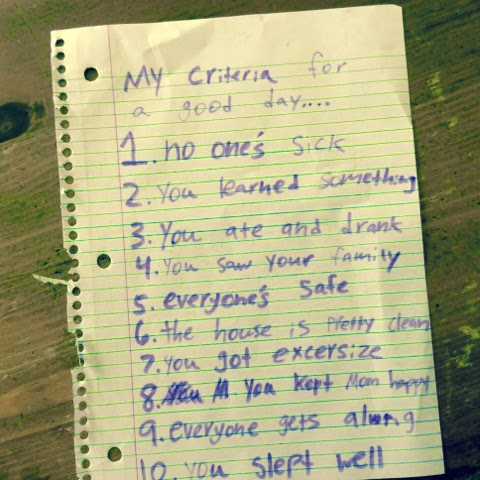 My criteria for
a good day....
1. no one's sick
2. You learned something
3. You ate and drank
4. You saw your family
5. everyone's safe
6. the house is pretty clean
7. you got excersize
8. You kept Mom happy
9. everyone gets along
10. you slept well